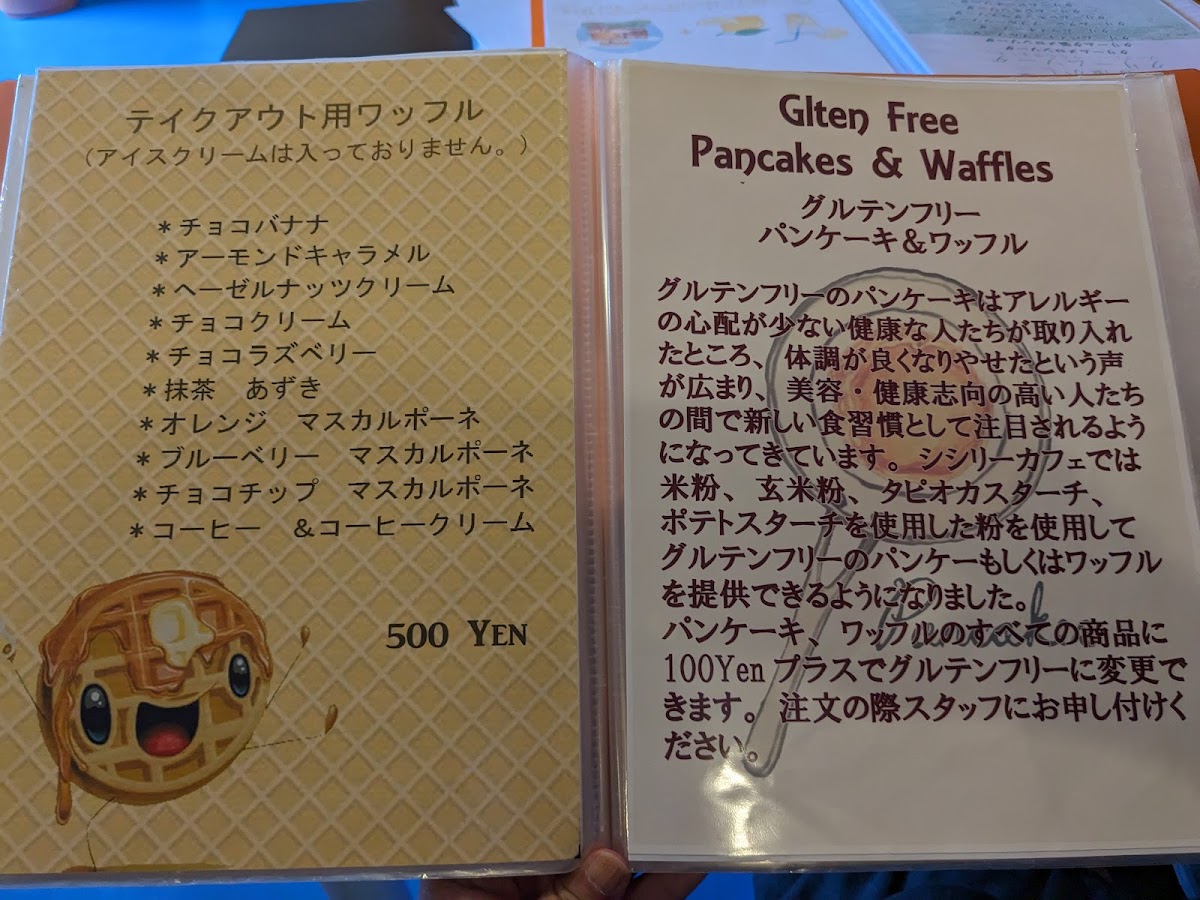 テイクアウト用ワッフル
（アイスクリームは入っておりません。）
＊チョコバナナ
＊アーモンドキャラメル
＊ヘーゼルナッツクリーム
＊チョコクリーム
＊チョコラズベリー
＊抹茶　あずき
＊オレンジ　マスカルポーネ
＊ブルーベリー　マスカルポーネ
＊チョコチップ　マスカルポーネ
＊コーヒー　＆コーヒークリーム
500 YEN
Glten Free
Pancakes & Waffles
グルテンフリー
パンケーキ＆ワッフル
グルテンフリーのパンケーキはアレルギー
の心配が少ない健康な人たちが取り入れ
たところ、体調が良くなりやせたという声
が広まり、美容・健康志向の高い人たち
の間で新しい食習慣として注目されるよう
になってきています。シシリーカフェでは
米粉、玄米粉、タピオカスターチ、
ポテトスターチを使用した粉を使用して
グルテンフリーのパンケーもしくはワッフル
を提供できるようになりました。
パンケーキ、ワッフルのすべての商品に
100Yenプラスでグルテンフリーに変更で
きます。注文の際スタッフにお申し付けく
ださい。